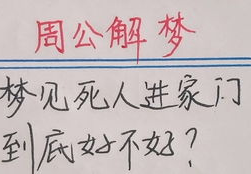 周公解梦
梦见死人进家门
到底好不好？